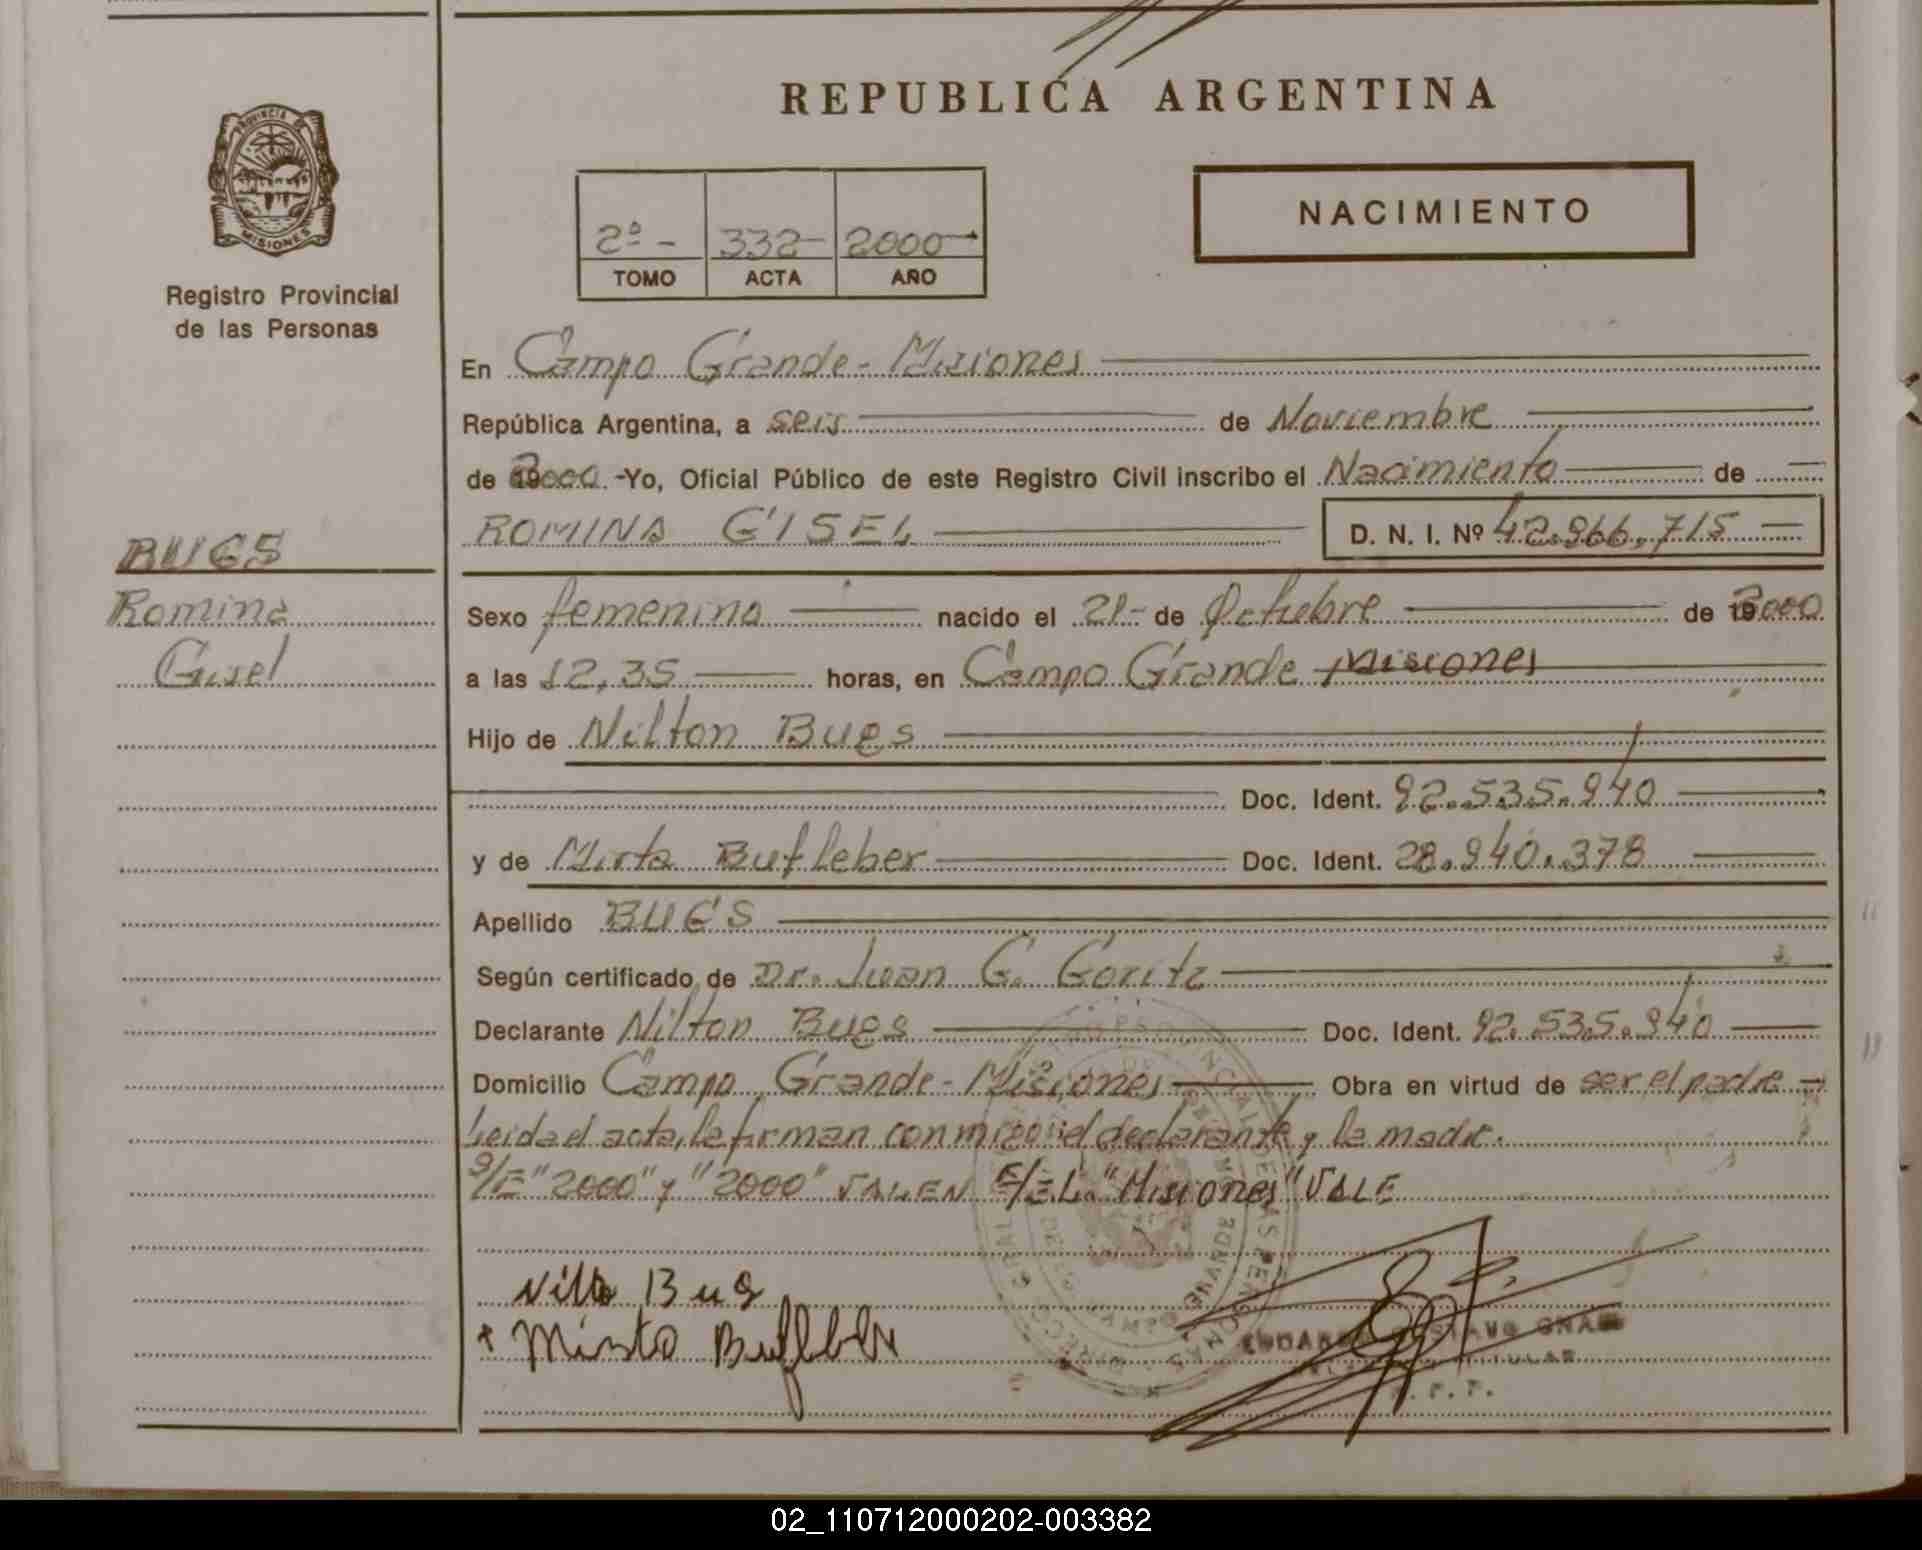 REPUBLICA ARGENTINA
PROVINCIA DE
MISIONES
Registro Provincial
de las Personas
2º - 332 - 2000
TOMO ACTA AÑO
NACIMIENTO
En Campo Grande - Misiones
República Argentina, a seis de Noviembre
de 2000 - Yo, Oficial Público de este Registro Civil inscribo el Nacimiento de
ROMINA GISEL D. N. I. Nº 42.966.715
BUES
Romina
Gisel
Sexo femenino nacido el 21 - de Octubre de 2000
a las 12,35 horas, en Campo Grande Misiones
Hijo de Nilton Bues
Doc. Ident. 92.535.940
y de Mirta Butleber Doc. Ident. 28.940.378
Apellido BUES
Según certificado de Dr. Juan G. Goritz
Declarante Nilton Bues Doc. Ident. 92.535.940
Domicilio Campo Grande - Misiones Obra en virtud de ser el padre
Leida el acta, la firman conmigo el declarante y la madre.
S/E "2000" y "2000" VALEN E/L "Misiones" VALE
Bue
Mirta
GUSTAVO
TITULAR
02_110712000202-003382